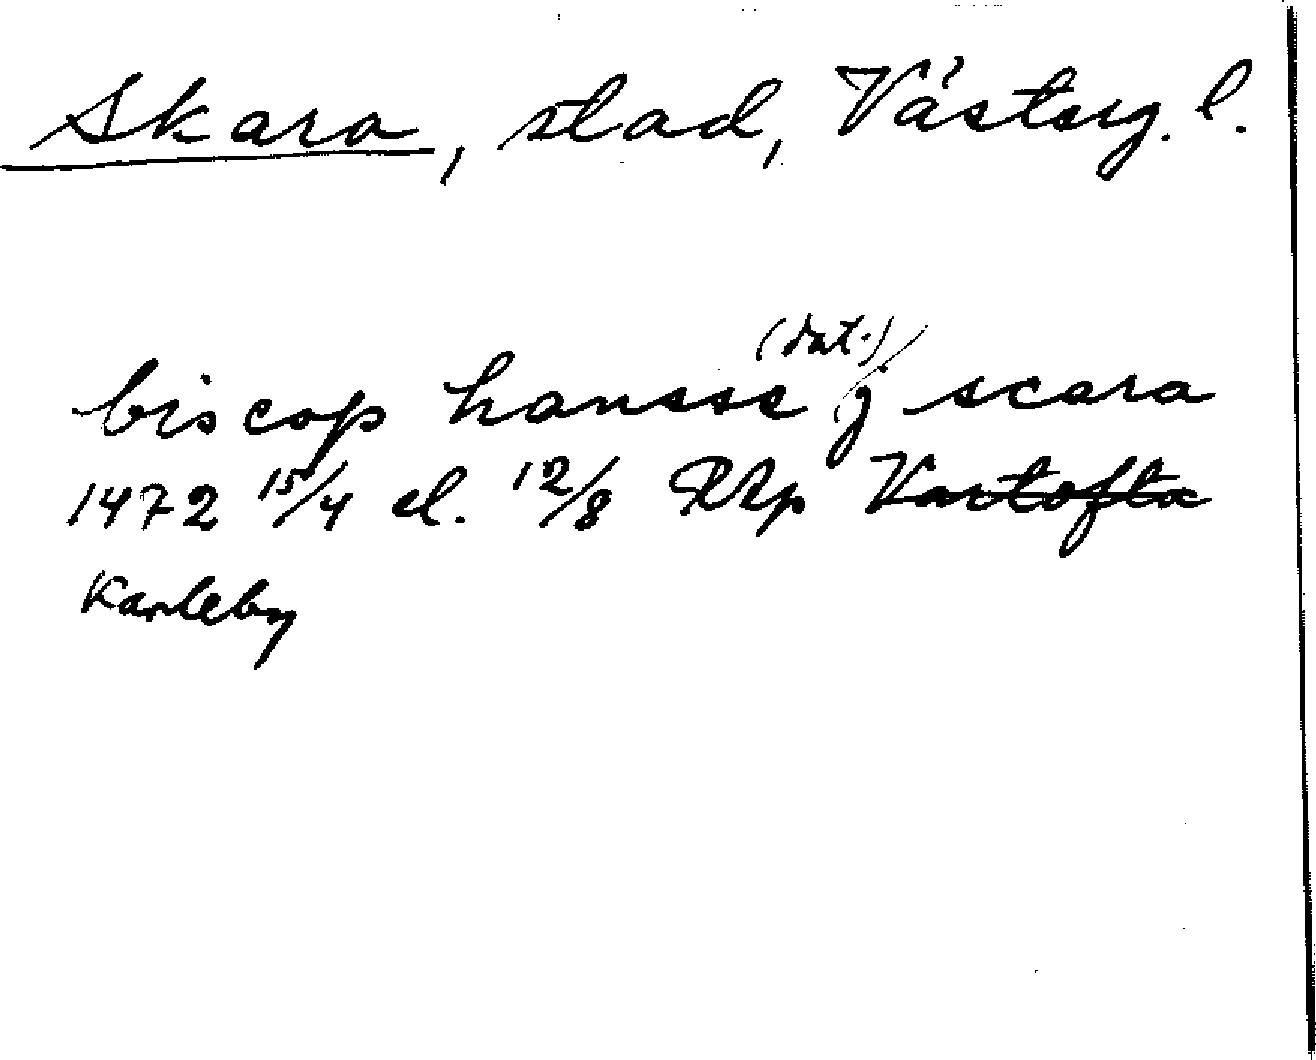 Skara, stad, Västerg. l.
biscop hansse (dat.) j scara
1472 15/4 el. 12/8 RAp Kartofta
Karleby